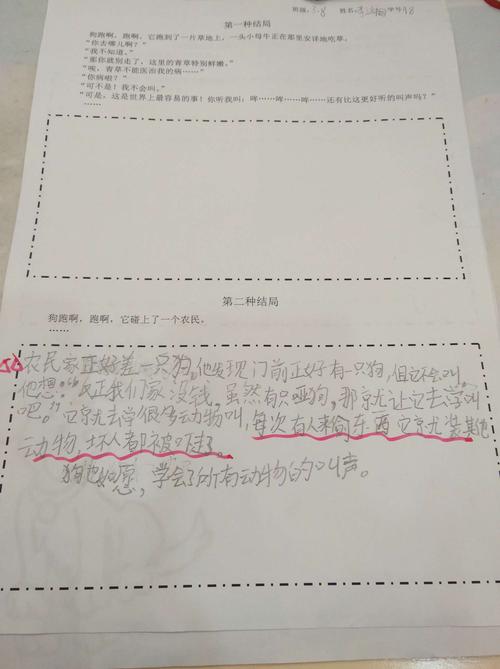 班级:3.8 姓名 学号18
第一种结局
狗跑啊，跑啊，它跑到了一片草地上，一头小母牛正在那里安详地吃草。
“你去哪儿啊？”
“我不知道。”
“那你就别走了，这里的青草特别鲜嫩。”
“唉，青草不能医治我的病……”
“你病啦？”
“可不是！我不会叫。”
“可是，这是世界上最容易的事！你听我叫：哞……哞……哞……还有比这更好听的叫声吗？”
……
第二种结局
狗跑啊，跑啊，它碰上了一个农民。
……
农民家正好差一只狗,他发现门前正好有一只狗,但它不会叫
他想:“反正我们家没钱,虽然有只哑狗,那就让它去学叫
吧。”它就去学很多动物叫,每次有人来偷东西它就装其他
动物,坏人都被吓走了。
狗也如愿,学会了所有动物的叫声。